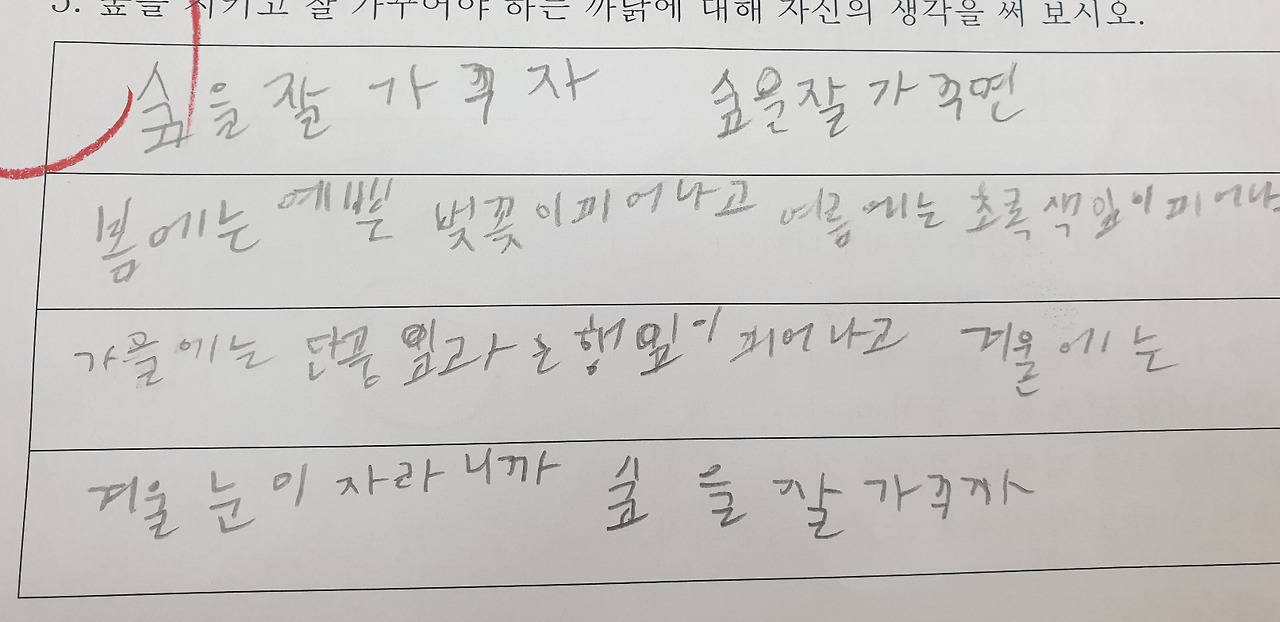 5. 숲을 지키고 잘 가꾸어야 하는 까닭에 대해 자신의 생각을 써 보시오.
숲을 잘 가꾸자 숲을잘 가꾸면
봄에는 예쁜 벚꽃이피어나고 여름에는 초록색잎이피어나
가을에는 단풍잎과 은행잎이 피어나고 겨울에는
겨울눈이 자라니까 숲을 잘 가꾸자